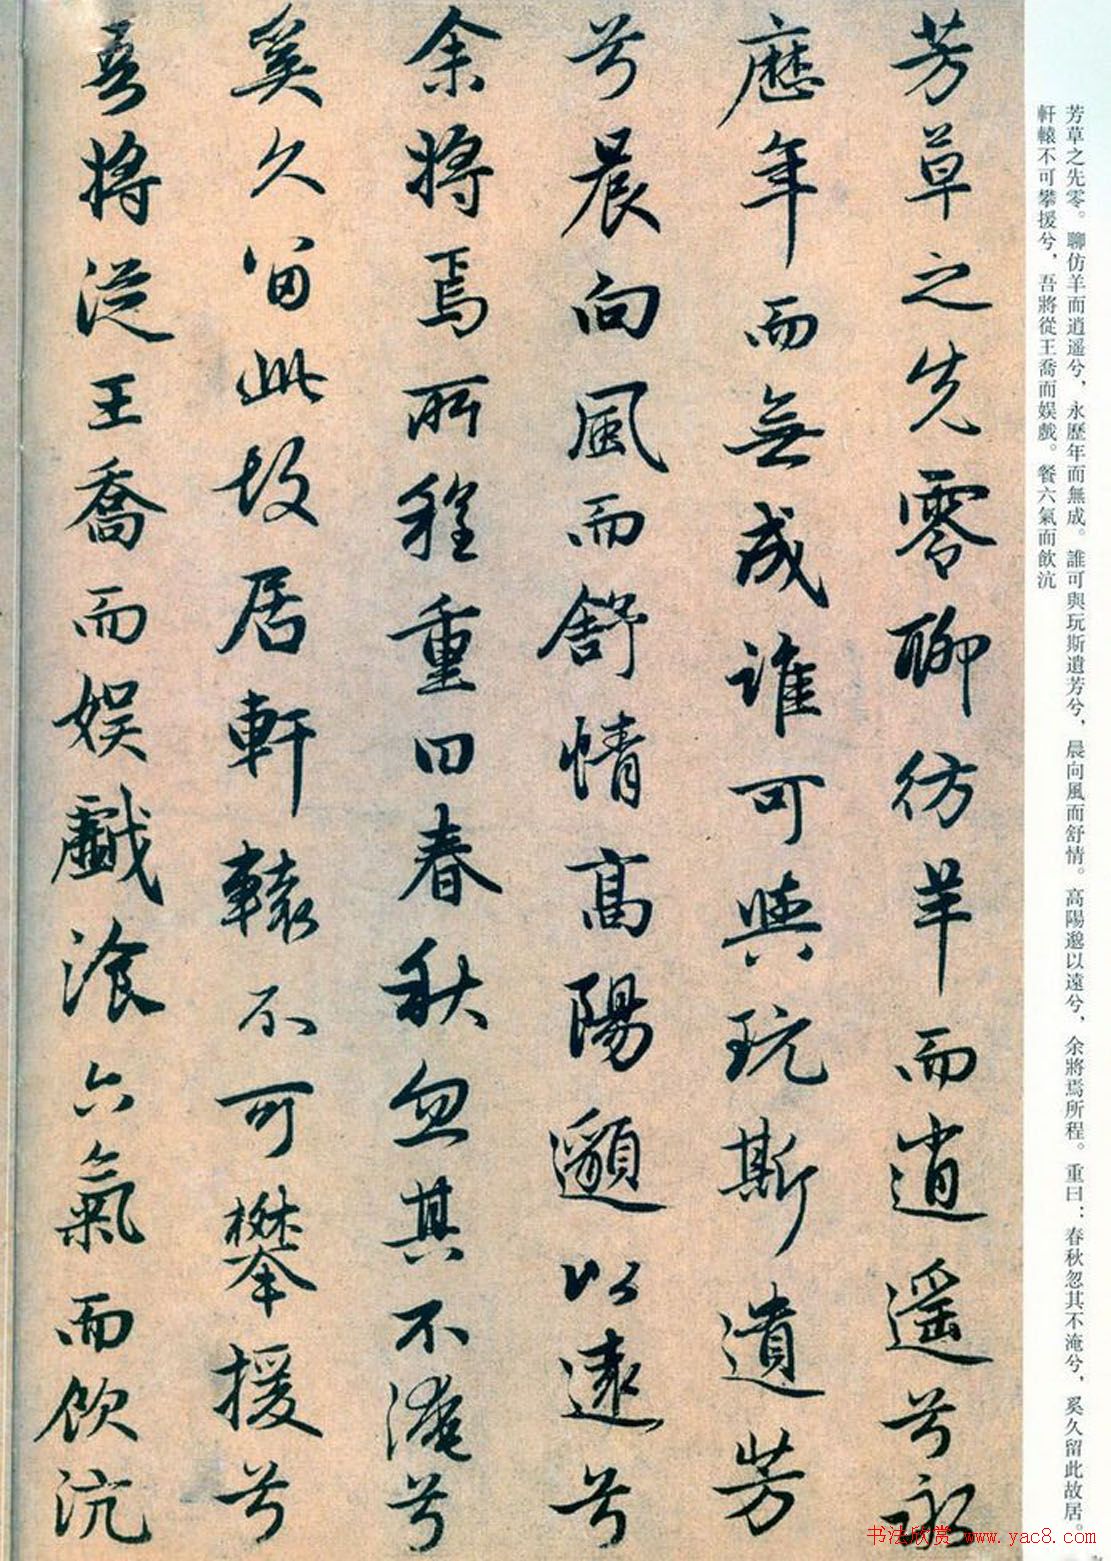 芳草之先零。聊仿羊而逍遥兮，永歷年而無成。誰可與玩斯遺芳兮，晨向風而舒情。高陽邈以遠兮，余將焉所程。重曰：春秋忽其不淹兮，奚久留此故居。
軒轅不可攀援兮，吾將從王喬而娱戲。餐六氣而飲沆
芳草之先零聊彷羊而逍遥兮永
歷年而無成誰可與玩斯遺芳
兮晨向風而舒情高陽邈以遠兮
余將焉所程重曰春秋忽其不淹兮
奚久留此故居軒轅不可攀援兮
吾將從王喬而娱戲湌六氣而飲沆
书法欣赏 www.yac8.com